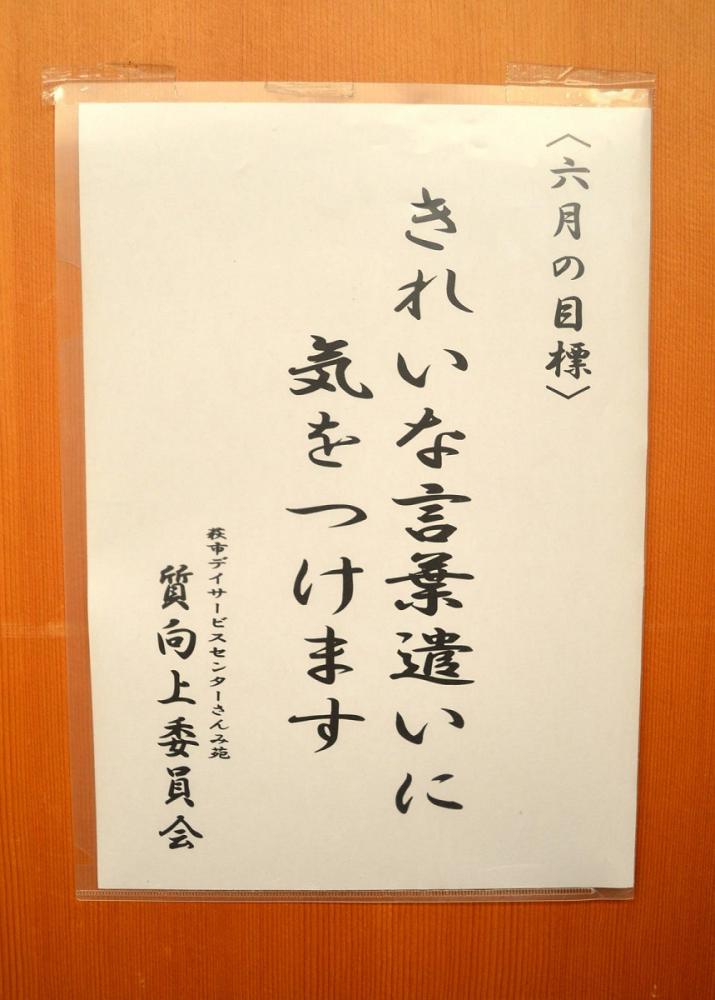 〈六月の目標〉
きれいな言葉遣いに
気をつけます
萩市デイサービスセンターさんみ苑
質向上委員会